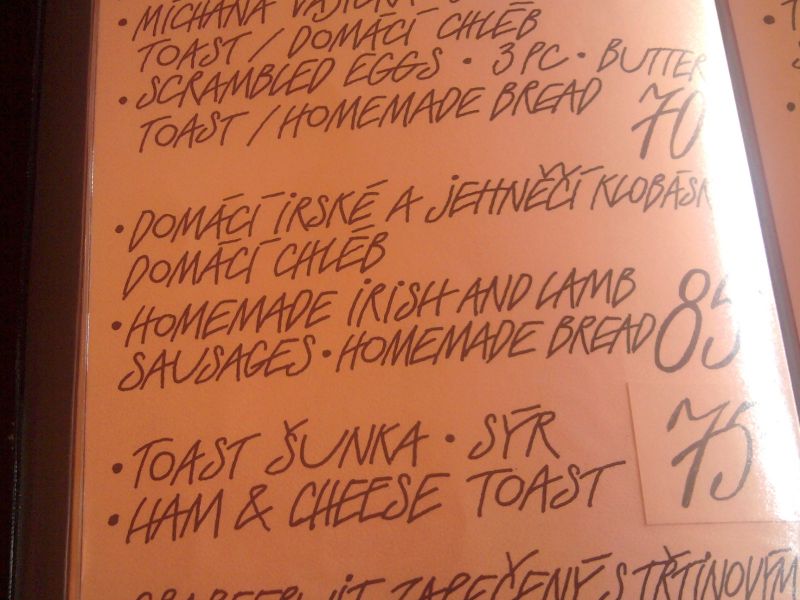 MÍCHANÁ VAJÍČKA
TOAST / DOMÁCÍ CHLÉB
• SCRAMBLED EGGS • 3 PC • BUTTER
TOAST / HOMEMADE BREAD 70
• DOMÁCÍ IRSKÉ A JEHNĚČÍ KLOBÁSK
DOMÁCÍ CHLÉB
• HOMEMADE IRISH AND LAMB
SAUSAGES • HOMEMADE BREAD 85
• TOAST ŠUNKA • SÝR
• HAM & CHEESE TOAST 75
GRAPEFRUIT ZAPEČENÝ S TŘTINOVÝM